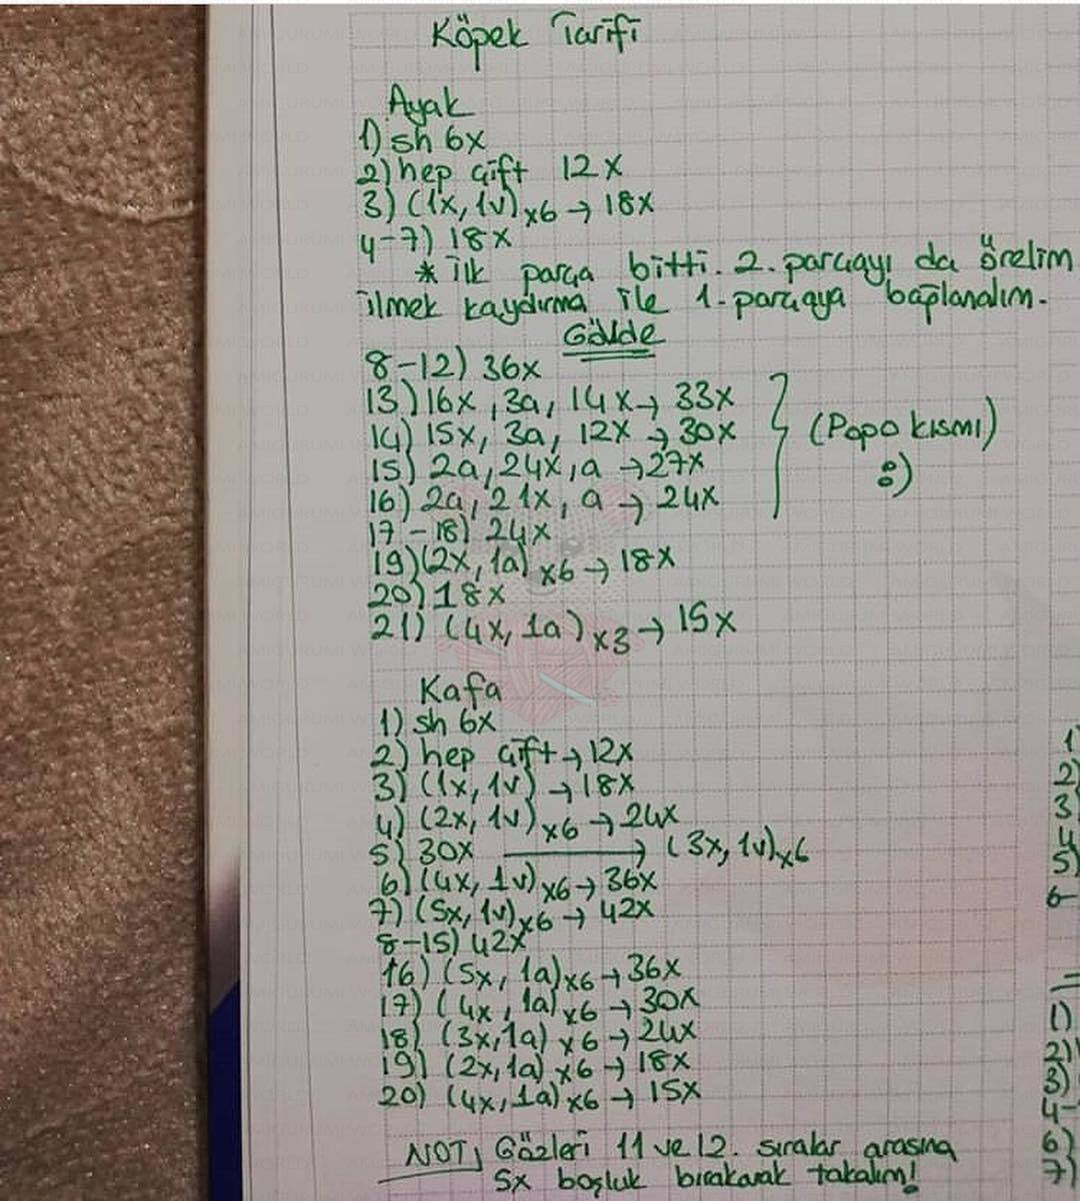 Köpek Tarifi
Ayak
1) sh 6x
2) hep çift 12x
3) (1x, 1v)x6 → 18x
4-7) 18x
* ilk parça bitti. 2. parçayı da örelim
ilmek kaydırma ile 1. parçaya bağlanalım.
Gövde
8-12) 36x
13) 16x, 3a, 14x → 33x
14) 15x, 3a, 12x → 30x
15) 2a, 24x, a → 27x
16) 2a, 21x, a → 24x
(Popo kısmı)
:)
17-18) 24x
19) (2x, 1a)x6 → 18x
20) 18x
21) (4x, 1a)x3 → 15x
Kafa
1) sh 6x
2) hep çift → 12x
3) (1x, 1v) → 18x
4) (2x, 1v)x6 → 24x
5) 30x → (3x, 1v)x6
6) (4x, 1v)x6 → 36x
7) (5x, 1v)x6 → 42x
8-15) 42x
16) (5x, 1a)x6 → 36x
17) (4x, 1a)x6 → 30x
18) (3x, 1a)x6 → 24x
19) (2x, 1a)x6 → 18x
20) (4x, 1a)x6 → 15x
NOT; Gözleri 11 ve 12. sıralar arasına
5x boşluk bırakarak takalım!
1)
2)
3)
4
5)
6-
1)
2)
3)
4-
6)
7)